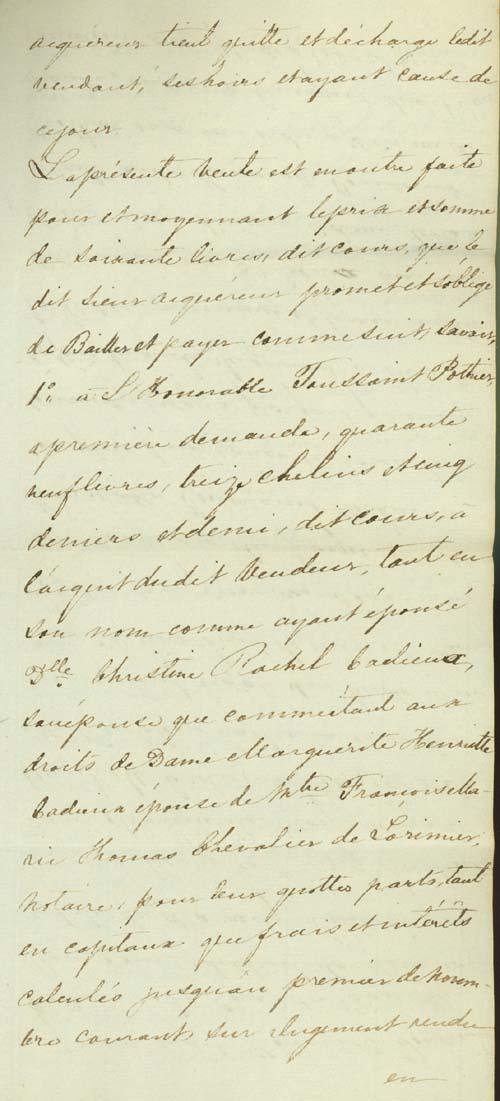 acquéreur tient quitte et décharge ledit
vendant, ses hoirs et ayant cause de
ce jour.
La présente vente est en outre faite
pour et moyennant le prix et somme
de soixante livres, dit cours, que le
dit sieur acquéreur promet et s'oblige
de Bailler et payer comme suit, savoir,
1o. à L'Honorable Toussaint Pothier,
a première demande, quarante
neuf livres, treize chelins et cinq
deniers et demi, dit cours, a
l'acquit dudit Vendeur, tant en
son nom comme ayant épousé
Dlle. Christine Rachel Cadieux,
son épouse que comme étant aux
droits de Dame Marguerite Henriette
Cadieux épouse de Mtre François Ma-
rie Thomas Chevalier de Lorimier,
Notaire, pour leur quottes parts, tant
en capitaux que frais et intérêts
calculés jusqu'au premier de Novem-
bre courant, sur Jugement rendu
en